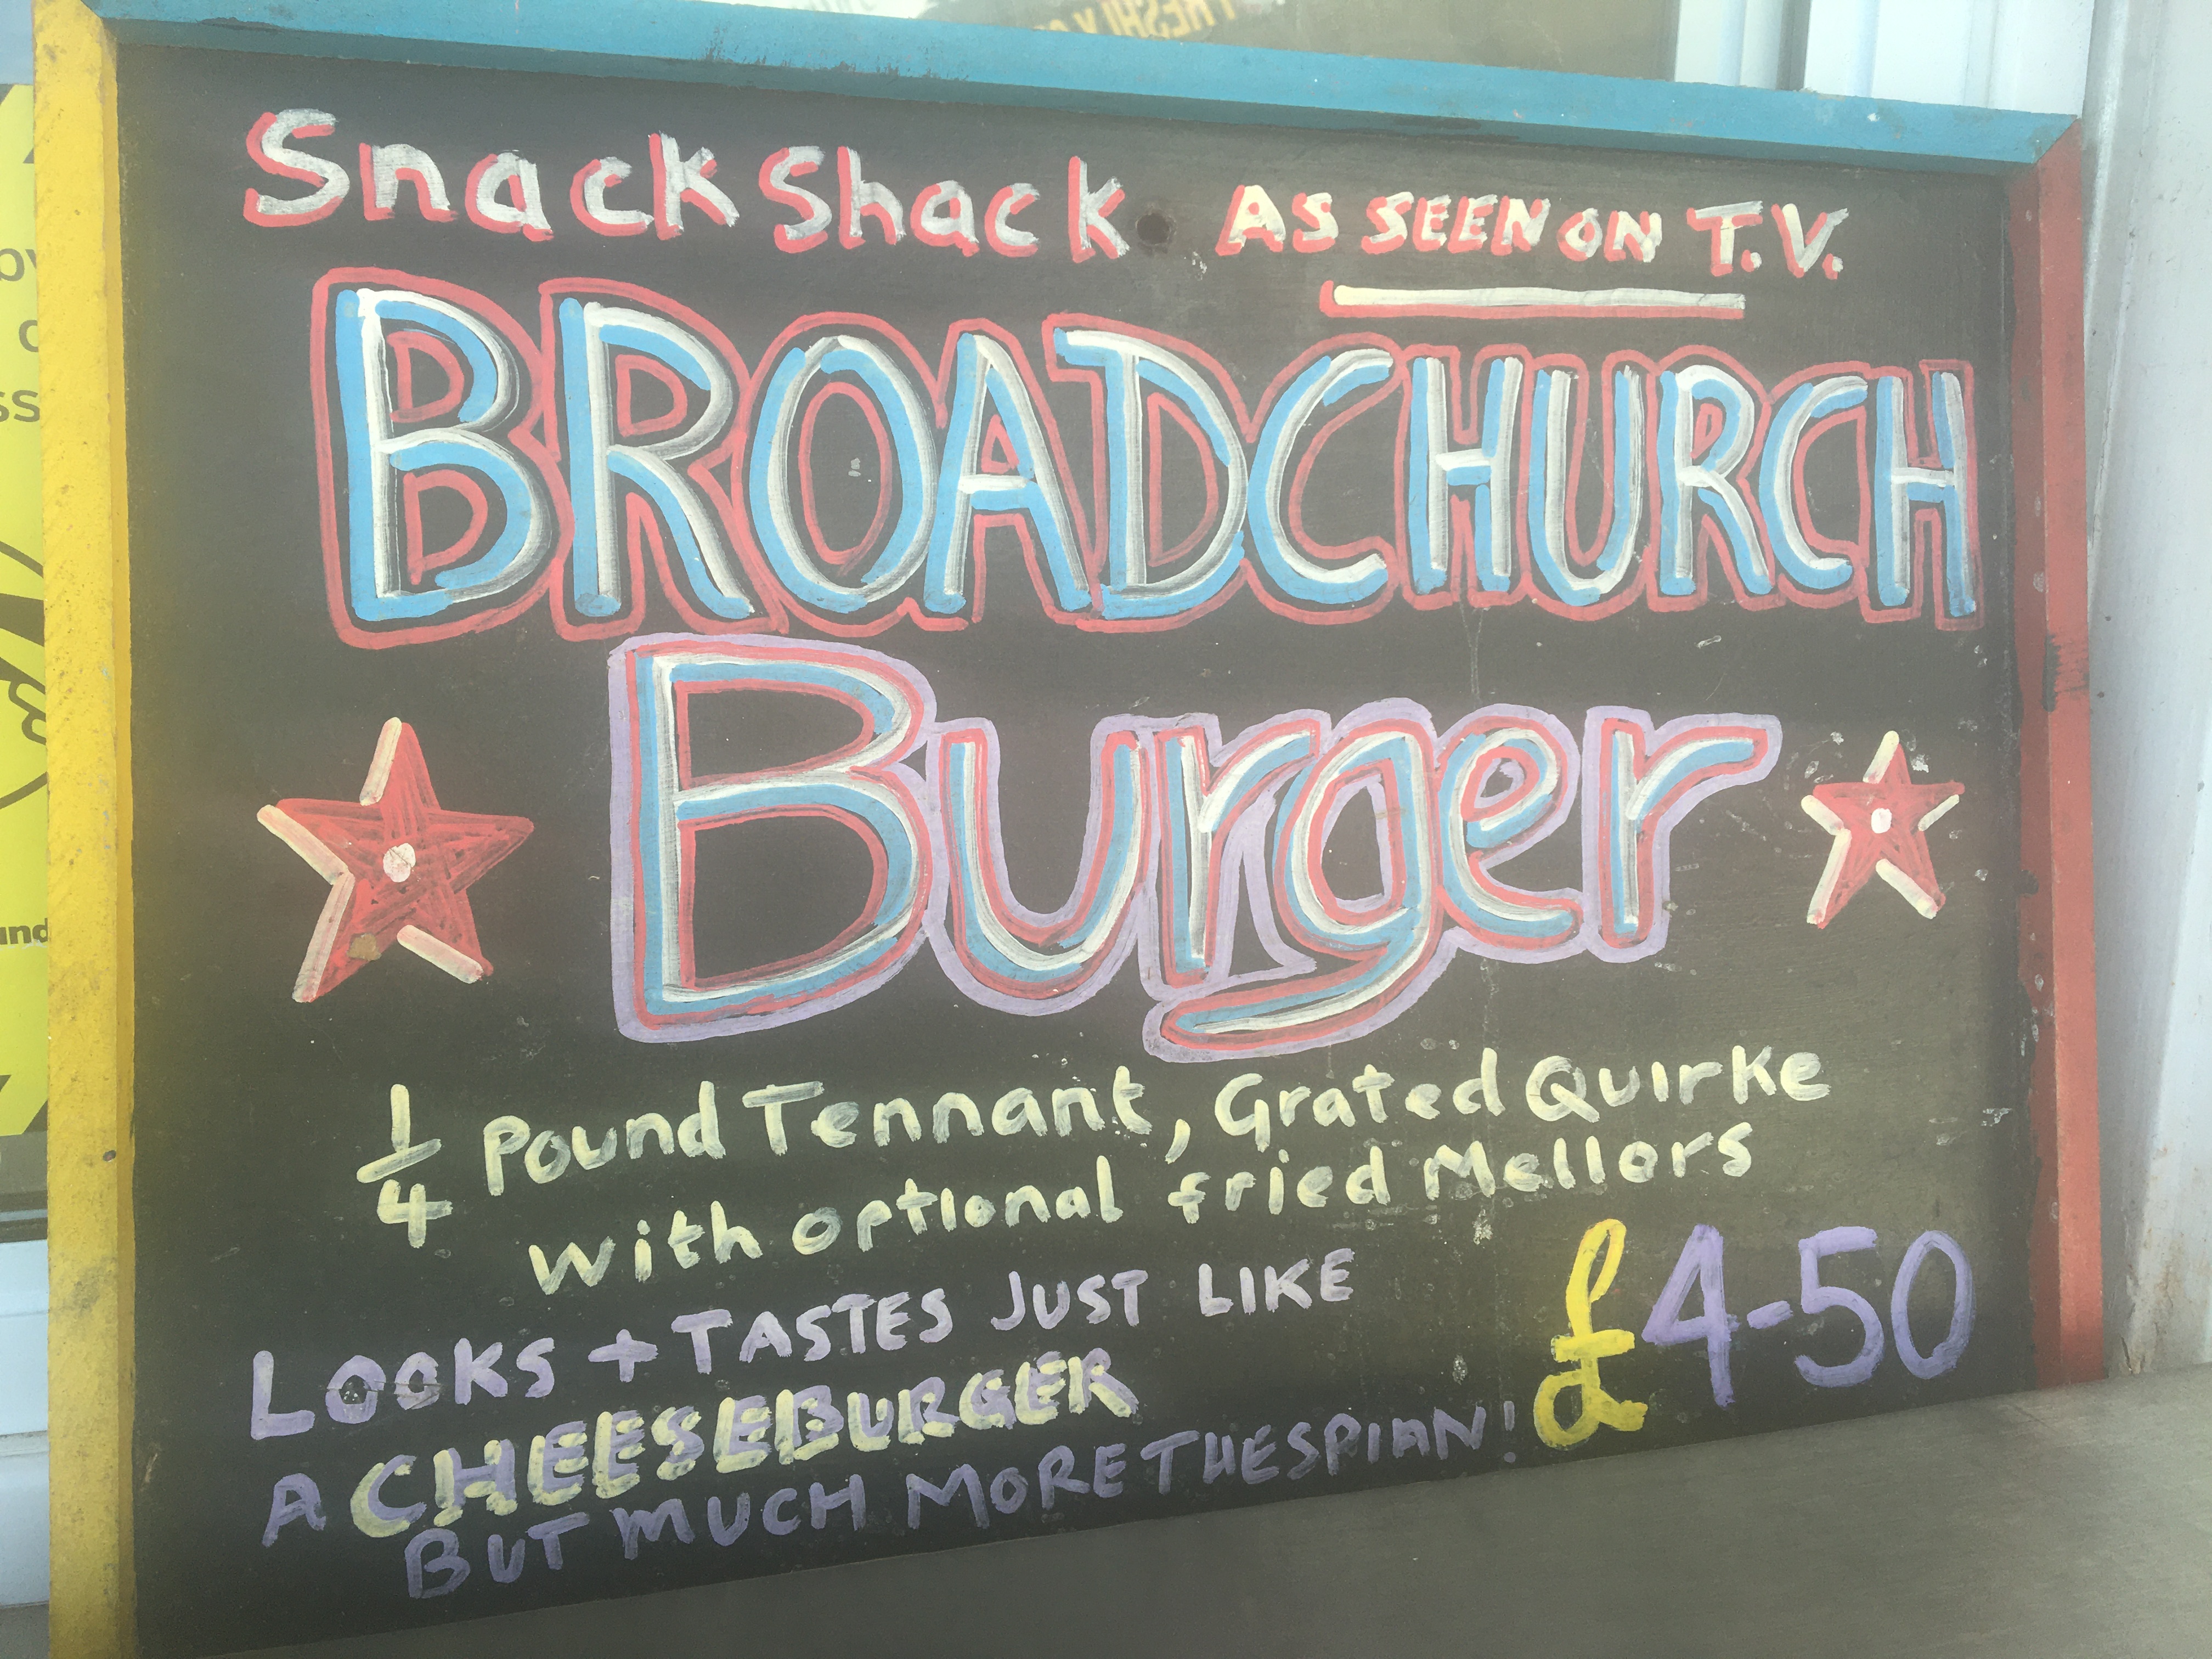 Snack Shack AS SEEN ON T.V.
BROADCHURCH
Burger
1/4 Pound Tennant, Grated Quirke
with optional fried Mellors
LOOKS + TASTES JUST LIKE
A CHEESEBURGER
BUT MUCH MORE THESPIAN!
£4-50